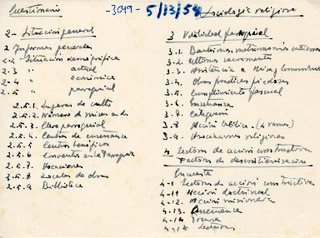 Cuestionario
-3099- 5/13/59
Sociología religiosa
2 - Situación general
2 Informes generales
2.2 Situación demográfica
2.3 " actual
2.4 " económica
2.5 " parroquial
2.5.1. Lugares de culto
2.5.2. Número de misas en ds
2.5.3. Clero parroquial
2.5.4. Centros de enseñanza
2.5.5 Centros benéficos
2.5.6 Conventos en la Parroquia
2.5.7 Vocaciones
2.5.8 Locales de obras
2.5.9 Biblioteca
3 Vitalidad parroquial
3.1. Bautismos, matrimonios, entierros
3.2. Últimos sacramentos
3.3. Asistencia a Misa y comuniones
3.4. Obras pontificias y piadosas
3.5. Cumplimiento pascual
3.6. Enseñanza
3.7. Categuesis
3.8 Acción Católica (4 ramas)
3.9. Asociaciones religiosas
4 Factores de acción constructiva
Factores de descristianización
Encuesta
4-1 Factores de acción constructiva
4-11 Acción doctrinal
4-12 Acción misionera
4-13. Enseñanza
4-14 Prensa